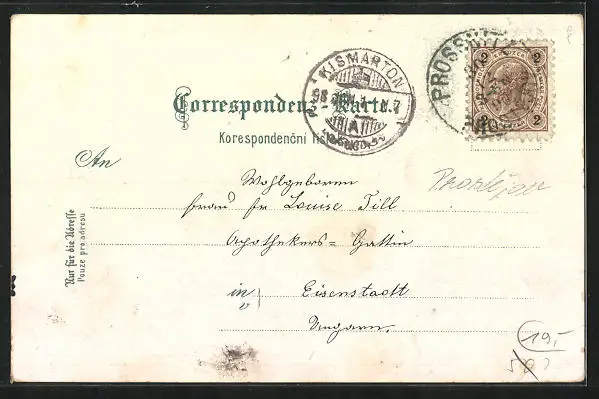 KISMARTON
PROSSNITZ
2 2
2 2
Correspondenz-Karte.
Korespondenční lístek.
An
Wohlgeboren
Frau Louise Till
Prostějov
Apothekers=Gattin
Nur für die Adresse
Pouze pro adresu
in Eisenstadt
v
Ungarn.
19,-